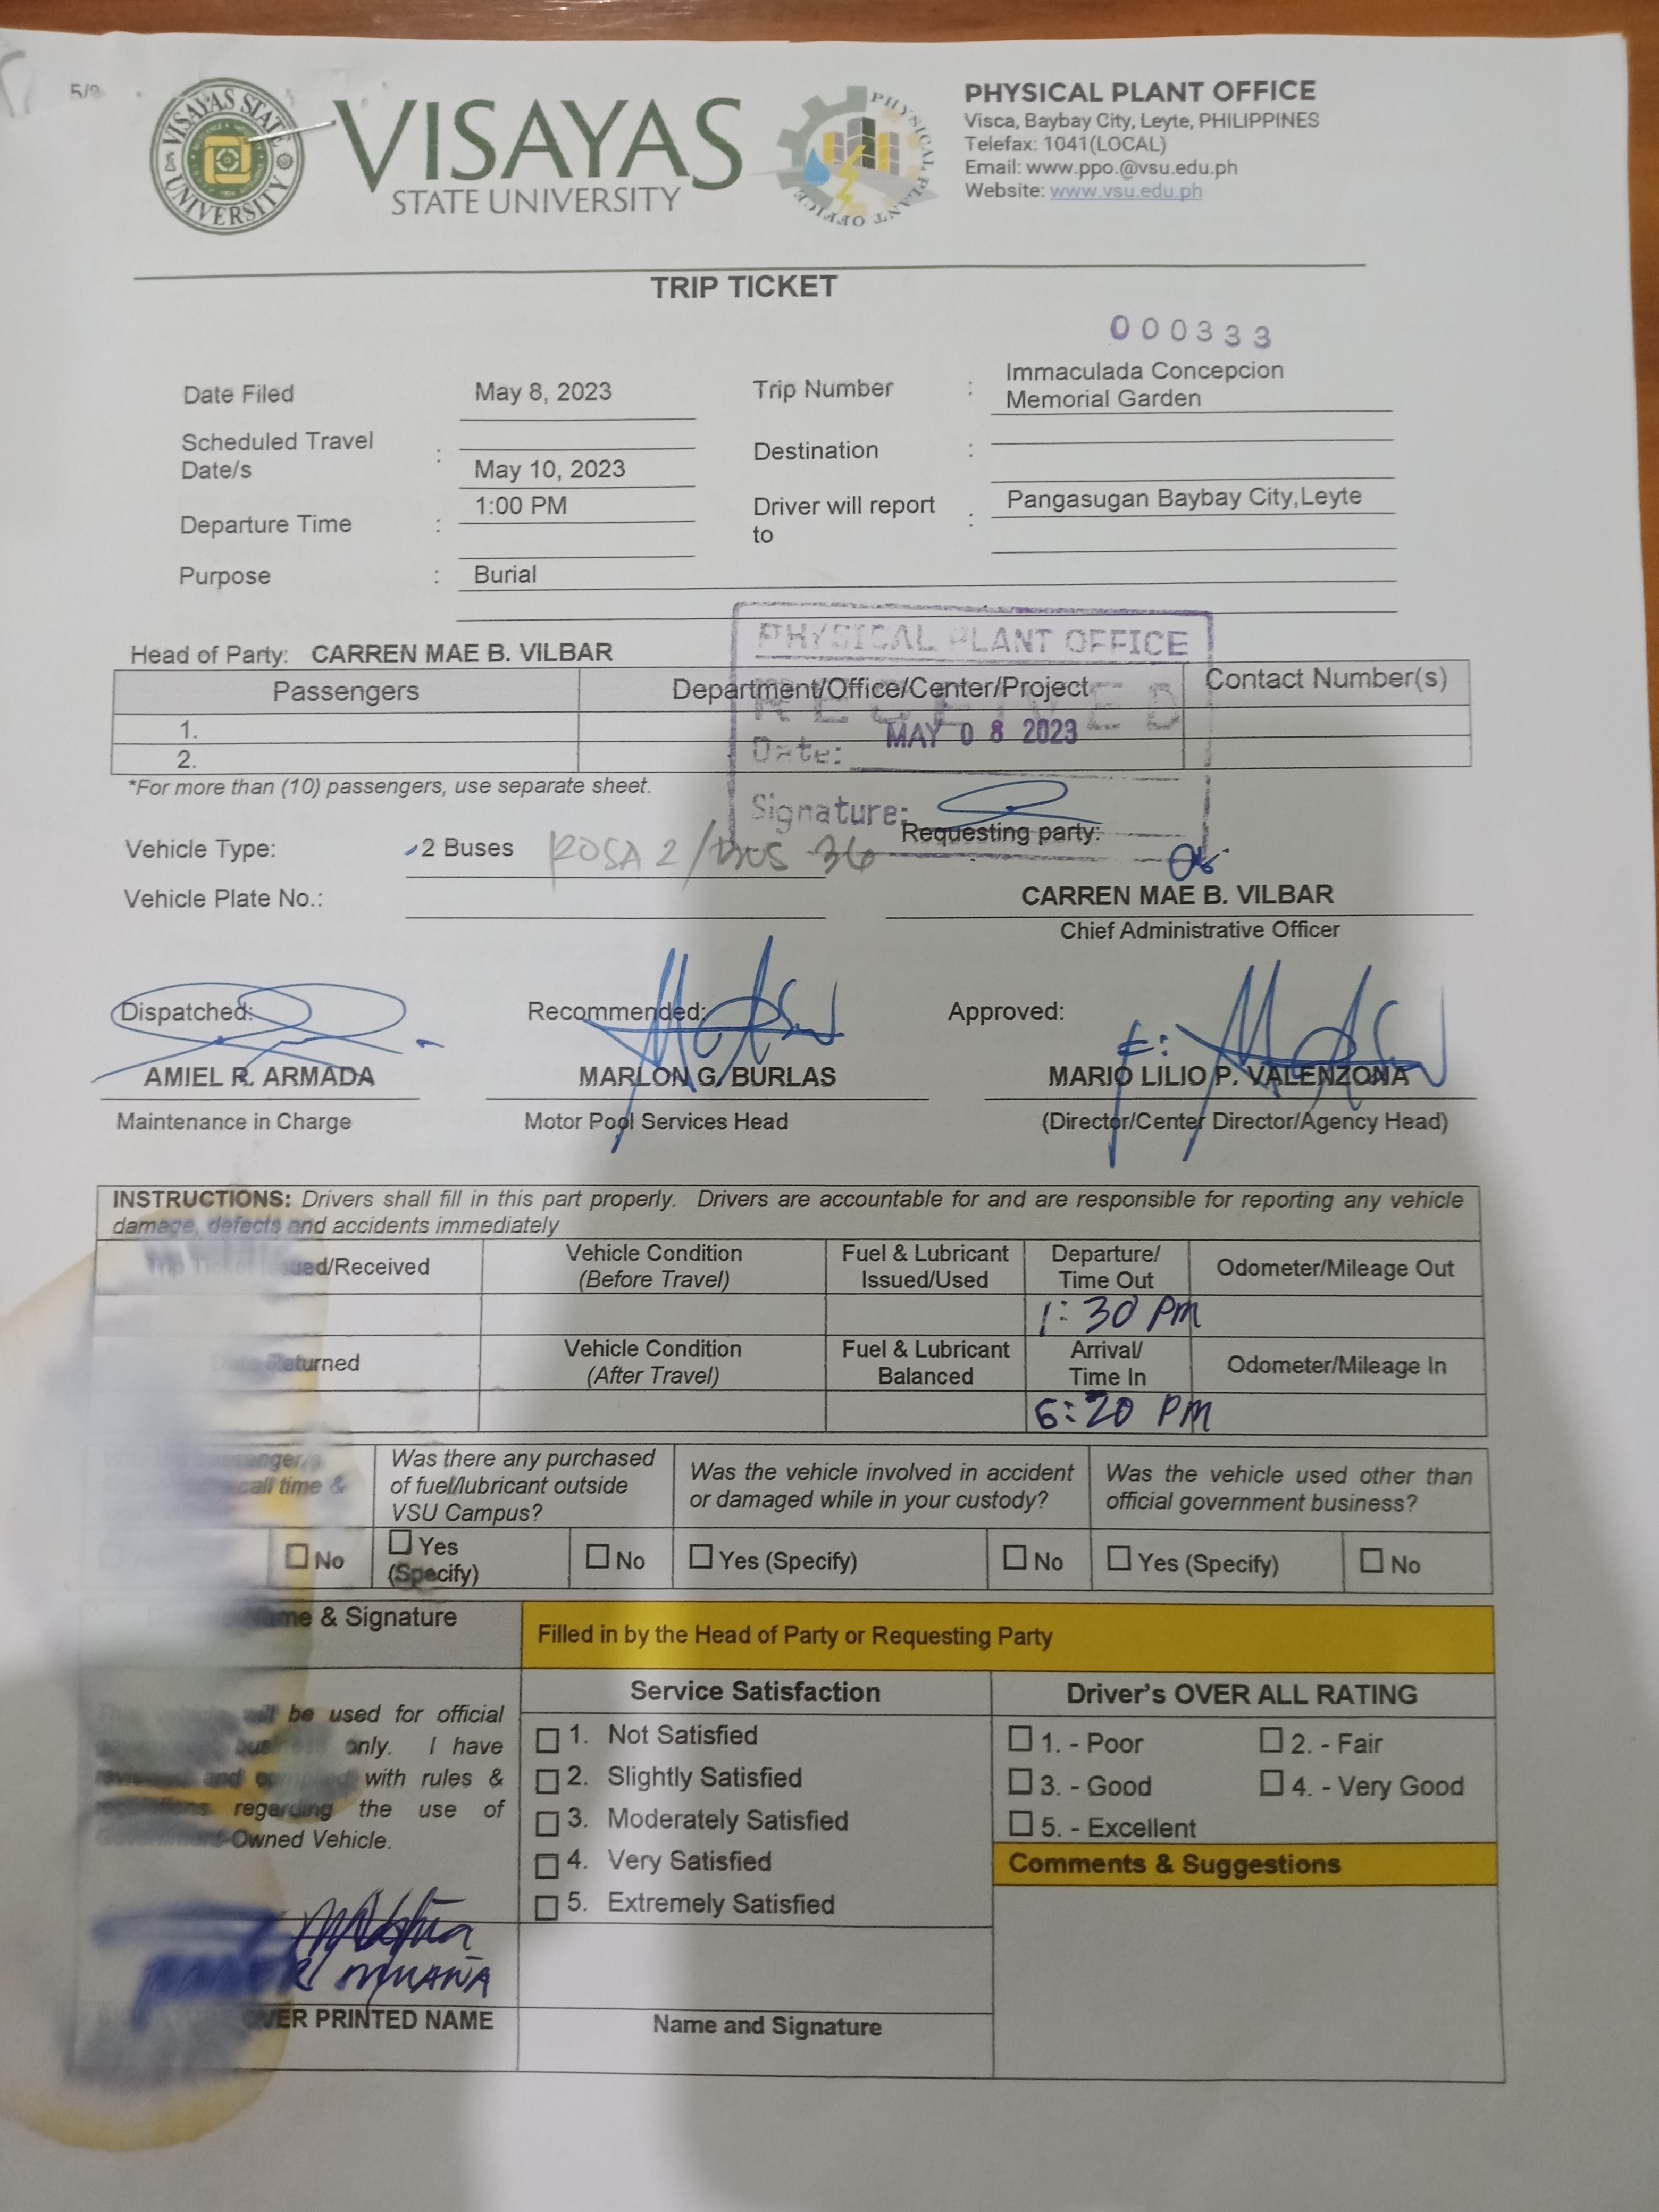 5/9
VISAYAS STATE UNIVERSITY
VISAYAS
STATE UNIVERSITY
PHYSICAL PLANT OFFICE
PHYSICAL PLANT OFFICE
Visca, Baybay City, Leyte, PHILIPPINES
Telefax: 1041(LOCAL)
Email: www.ppo.@vsu.edu.ph
Website: www.vsu.edu.ph
TRIP TICKET
000333
Date Filed May 8, 2023 Trip Number : Immaculada Concepcion
Memorial Garden
Scheduled Travel
Date/s : May 10, 2023 Destination :
Departure Time : 1:00 PM Driver will report
to : Pangasugan Baybay City,Leyte
Purpose : Burial
PHYSICAL PLANT OFFICE
RECEIVED
Date: MAY 08 2023
Signature:
Head of Party: CARREN MAE B. VILBAR
Passengers Department/Office/Center/Project Contact Number(s)
1.
2.
*For more than (10) passengers, use separate sheet.
Requesting party:
Vehicle Type: 2 Buses ROSA 2/BUS 36
Vehicle Plate No.:
CARREN MAE B. VILBAR
Chief Administrative Officer
Dispatched: Recommended: Approved:
AMIEL R. ARMADA MARLON G. BURLAS MARIO LILIO P. VALENZONA
Maintenance in Charge Motor Pool Services Head (Director/Center Director/Agency Head)
INSTRUCTIONS: Drivers shall fill in this part properly. Drivers are accountable for and are responsible for reporting any vehicle
damage, defects and accidents immediately
Trip Ticket Issued/Received Vehicle Condition
(Before Travel) Fuel & Lubricant
Issued/Used Departure/
Time Out Odometer/Mileage Out
1:30 PM
Date Returned Vehicle Condition
(After Travel) Fuel & Lubricant
Balanced Arrival/
Time In Odometer/Mileage In
6:20 PM
call time &
Was there any purchased
of fuel/lubricant outside
VSU Campus?
Was the vehicle involved in accident
or damaged while in your custody?
Was the vehicle used other than
official government business?
No Yes
(Specify) No Yes (Specify) No Yes (Specify) No
Name & Signature
Filled in by the Head of Party or Requesting Party
will be used for official
business only. I have
reviewed and complied with rules &
regulations regarding the use of
Government-Owned Vehicle.
OVER PRINTED NAME
Service Satisfaction
1. Not Satisfied
2. Slightly Satisfied
3. Moderately Satisfied
4. Very Satisfied
5. Extremely Satisfied
Name and Signature
Driver's OVER ALL RATING
1. - Poor 2. - Fair
3. - Good 4. - Very Good
5. - Excellent
Comments & Suggestions